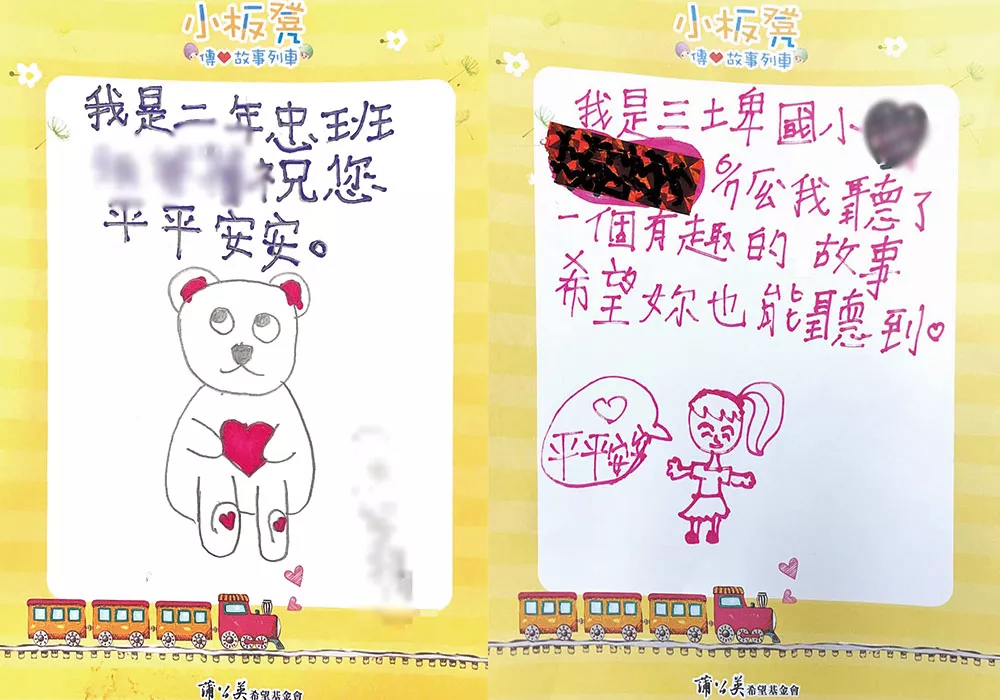 小板凳
傳故事列車
我是二年忠班
祝您
平平安安。
蒲公英希望基金會
小板凳
傳故事列車
我是三埤國小
我聽了
一個有趣的故事
希望妳也能聽到。
平平安安
蒲公英希望基金會